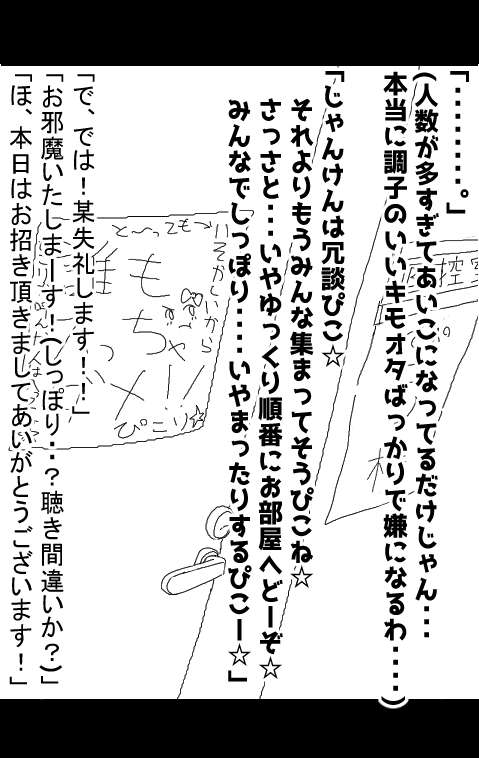 「・・・・・・・・。」
(人数が多すぎてあいこになってるだけじゃん・・・
本当に調子のいいキモオタばっかりで嫌になるわ・・・・)
「じゃんけんは冗談ぴこ☆
それよりもうみんな集まってそうぴこね☆
さっさと・・・いやゆっくり順番にお部屋へどーぞ☆
みんなでしっぽり・・・・いやまったりするぴこー☆」
「で、では！某失礼します！！」
「お邪魔いたしまーす！(しっぽり・・？聴き間違いか？)」
「ほ、本日はお招き頂きましてあいがとうございます！」
控室
と〜っても
いそがしいから
もち
ぴこり☆